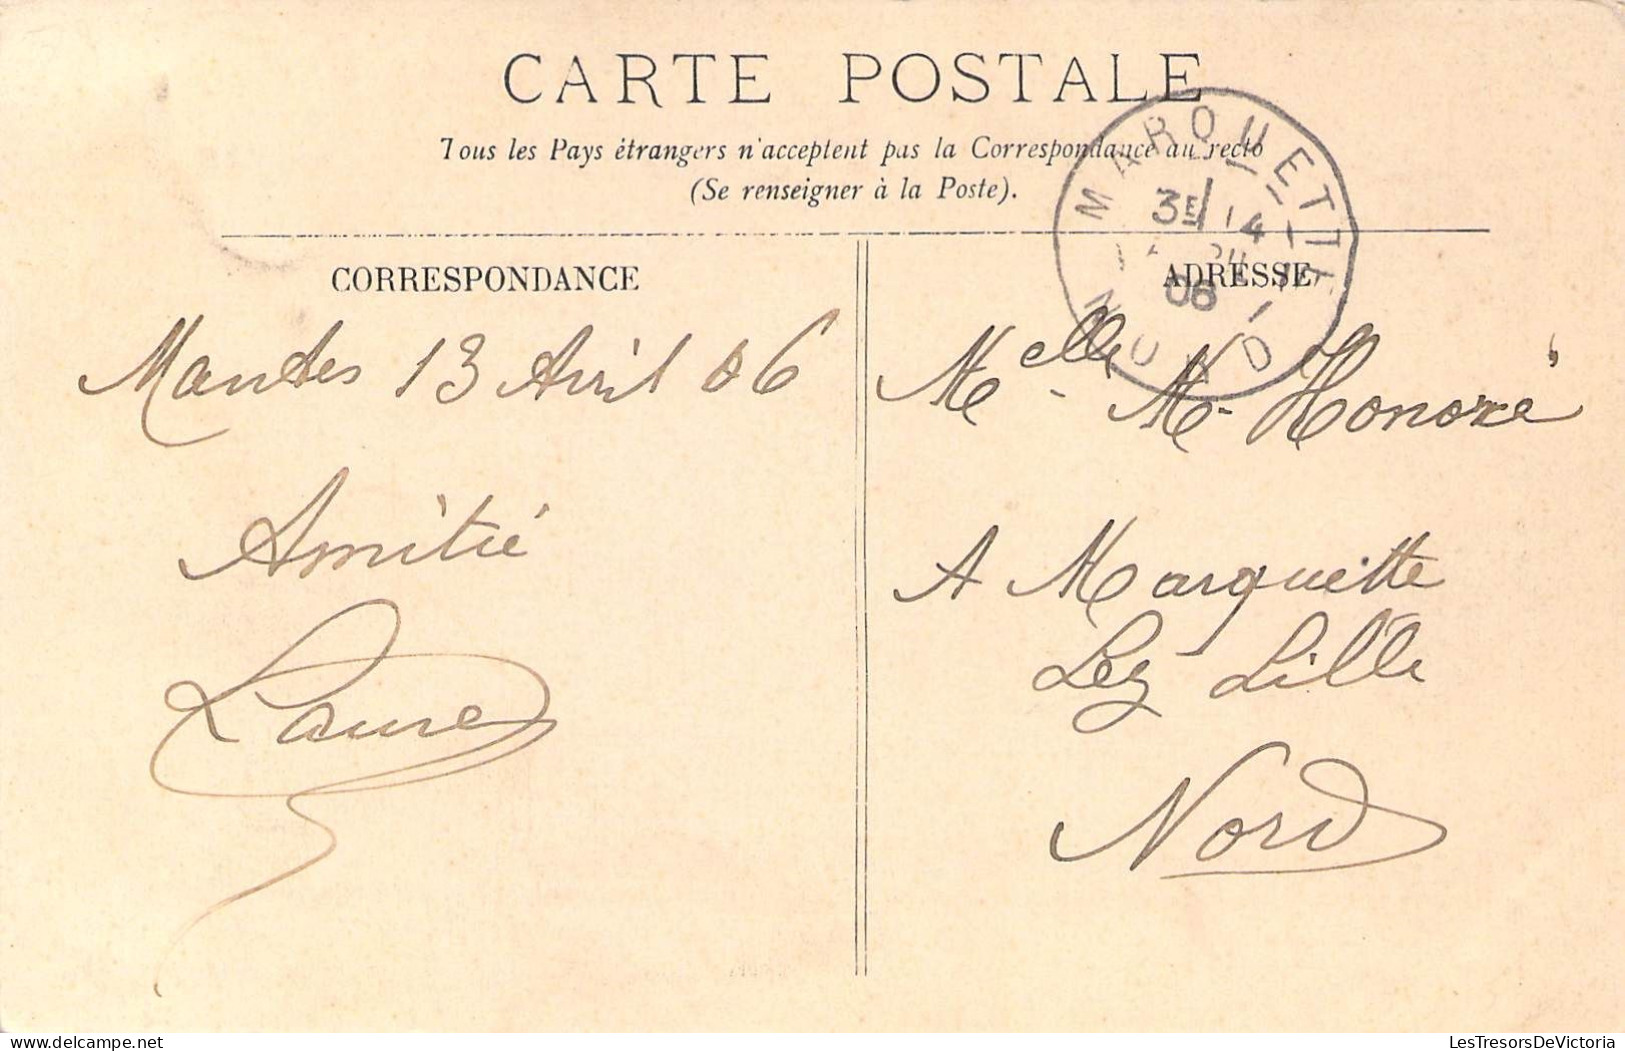 CARTE POSTALE
Tous les Pays étrangers n'acceptent pas la Correspondance au recto
(Se renseigner à la Poste).
CORRESPONDANCE
Mantes 13 Avril 06
Amitié
Laure
ADRESSE
Melle M. Honoré
A Marquette
Lez Lille
Nord
MARQUETTE
3E 14
06
NORD
LesTresorsDeVictoria